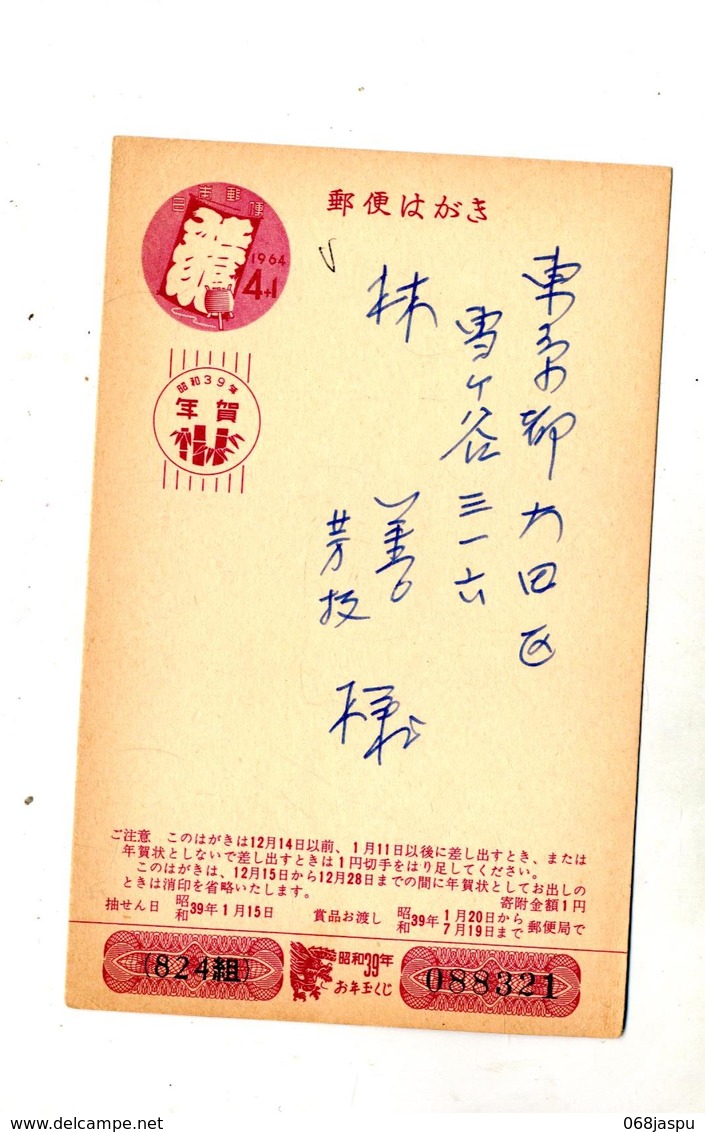 郵便はがき
日本郵便
1964
4+1
昭和39年
年賀
東京都大田区
雪ヶ谷三一六
林
善
芳枝
様
ご注意 このはがきは12月14日以前、1月11日以後に差し出すとき、または
年賀状としないで差し出すときは1円切手をはり足してください。
このはがきは、12月15日から12月28日までの間に年賀状としてお出しの
ときは消印を省略いたします。
寄附金額1円
抽せん日 昭和39年1月15日 賞品お渡し 昭和39年 1月20日から 7月19日まで 郵便局で
(824組)
昭和39年
お年玉くじ
088321
www.delcampe.net
068jaspu